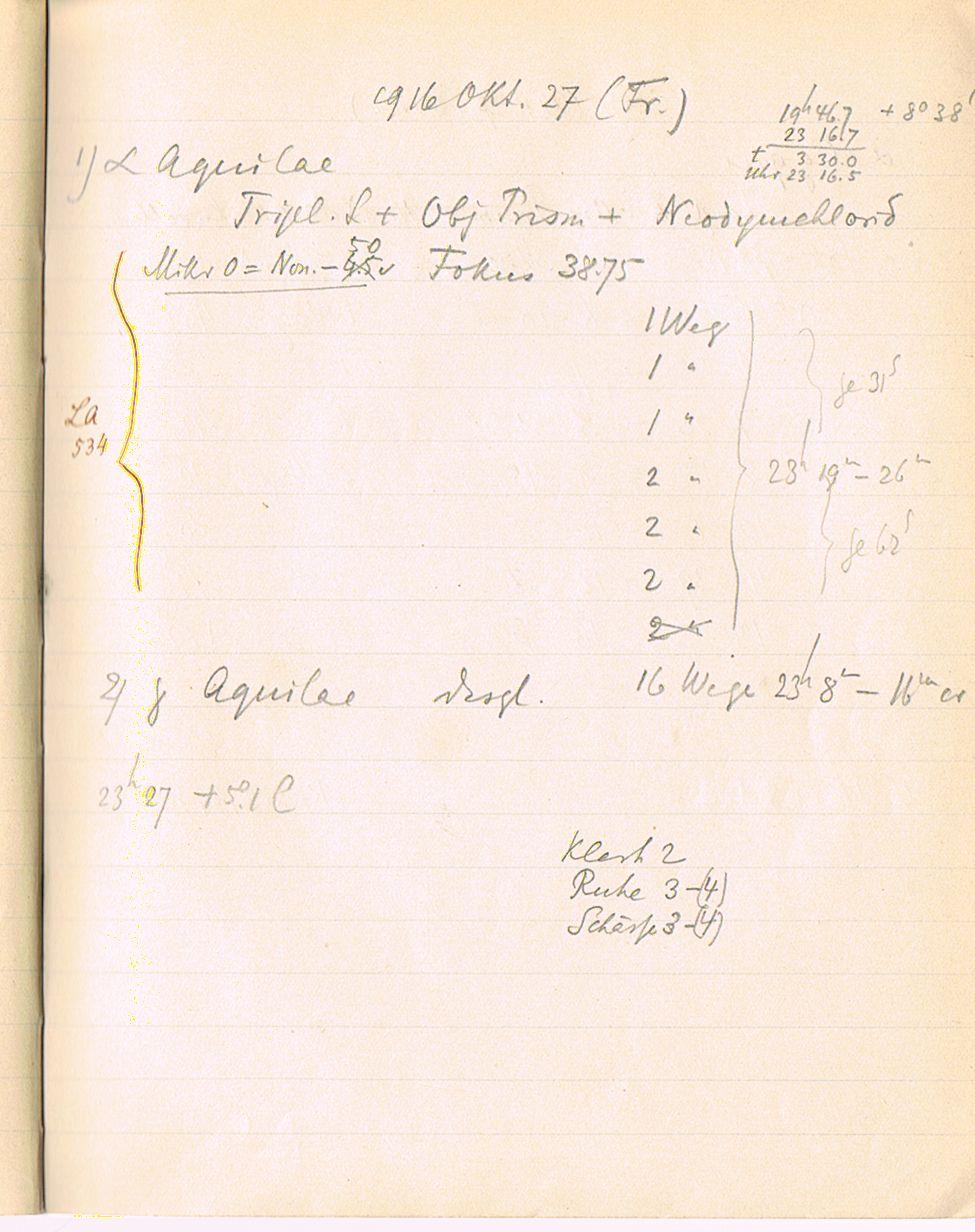 1916 Okt. 27 (Fr.)
19h 46.7 + 8° 38'
23 16.7
t 3 30.0
Uhr 23 16.5
1) α Aquilae
Tripl. L + Obj Prism + Neodymchlorid
50
Mikr 0 = Non. - 4.5 Fokus 38.75
1 Weg
1 "
je 31s
La
534
1 "
2 " 23h 19m - 26m
2 "
je 62s
2 "
2 "
2) γ Aquilae desgl. 16 Wege 23h 8m - 16m
23h 27 +5°.1 C
Klarh 2
Ruhe 3-(4)
Schärfe 3-(4)